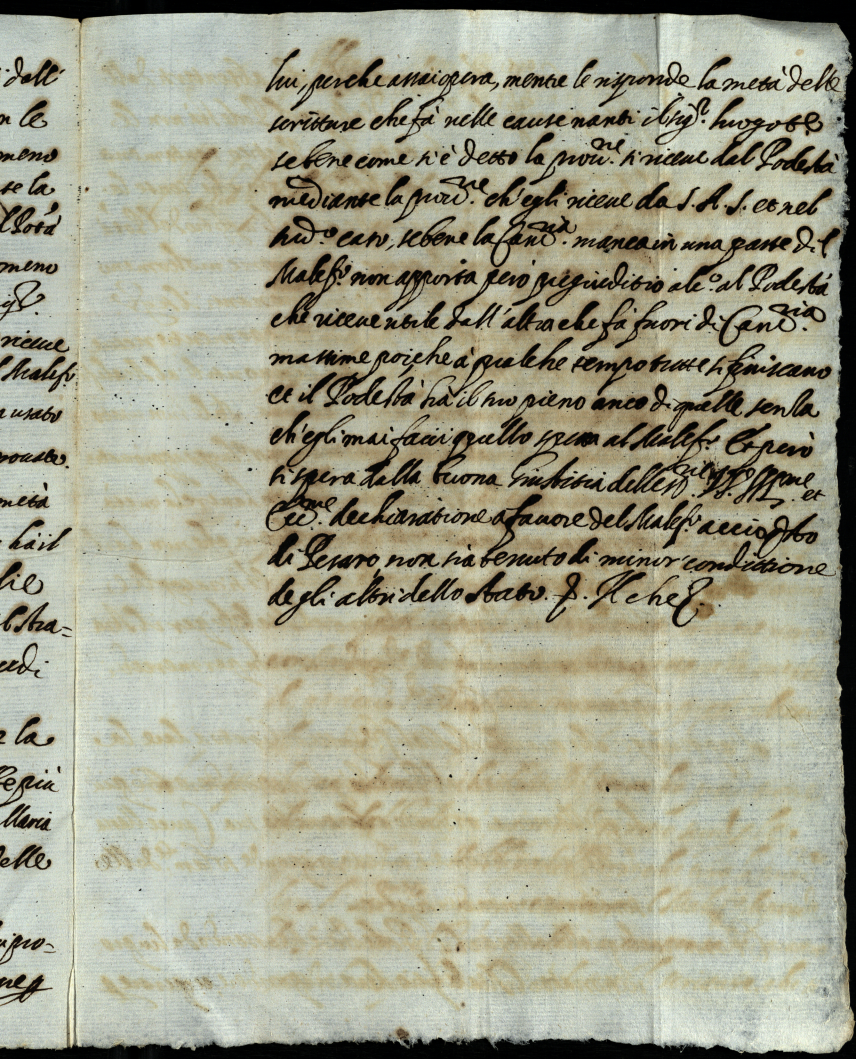 dall'
n le
meno
se la
l Potà
meno
riceve
l Malef.
n usato
metà
hà il
lie
la
Maria
delle
lui, perche assai opera, mentre le risponde la metà delle
scritture che fà nelle cause nanti il sig.r luogot.e
se bene come si è detto la prou.ne si riceue dal Podestà
mediante la prou.ne ch'egli riceue da S. A. S. et nel
sud.o caso, se bene la Canc.ria manca in una parte del
Malef.o non apporta però pregiuditio alc.o al Podestà
che riceue utile dall'altra che fà fuori di Canc.ria
massime poiche à qualche tempo tutte si finiscano
et il Podestà hà il suo pieno anco di quelle senza
ch'egli mai facci quello spera al Malef.o E però
si spera dalla buona giustitia delle SS.rie VV. Ill.me et
Ecc.me dechiaratione a fauore del Malef.o accio q.to
di Pesaro non sia tenuto di minor condittione
degli altri dello Stato.